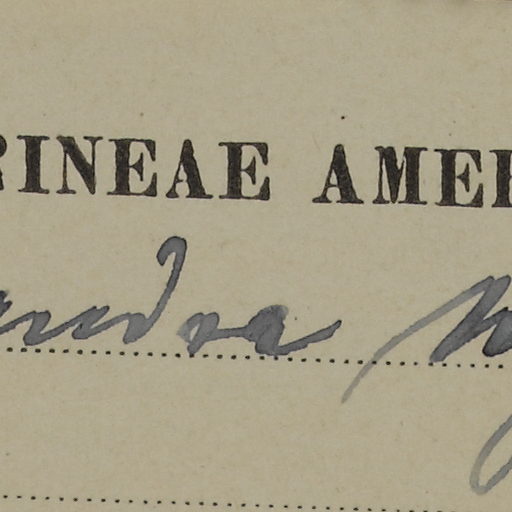 RINEAE AMER
andra